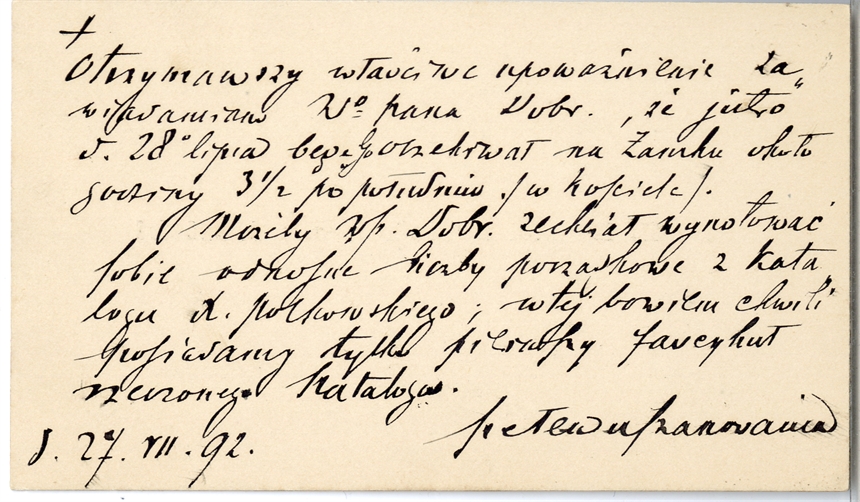 +
Otrzymawszy właściwe upoważnienie za„
wiadamiam Wº pana Dobr., że jutro"
d. 28º lipca będę Go oczekiwał na Zamku około
godziny 3 1/2 po południu /w kościele/.
Możeby Wp. Dobr. zechciał wynotować
sobie odnośne liczby porządkowe z kata
logu X. Polkowskiego; w tej bowiem chwili
posiadamy tylko pierwszy fascykuł
rzeczonego Katalogu.
pełen uszanowania
d. 27. VII. 92.